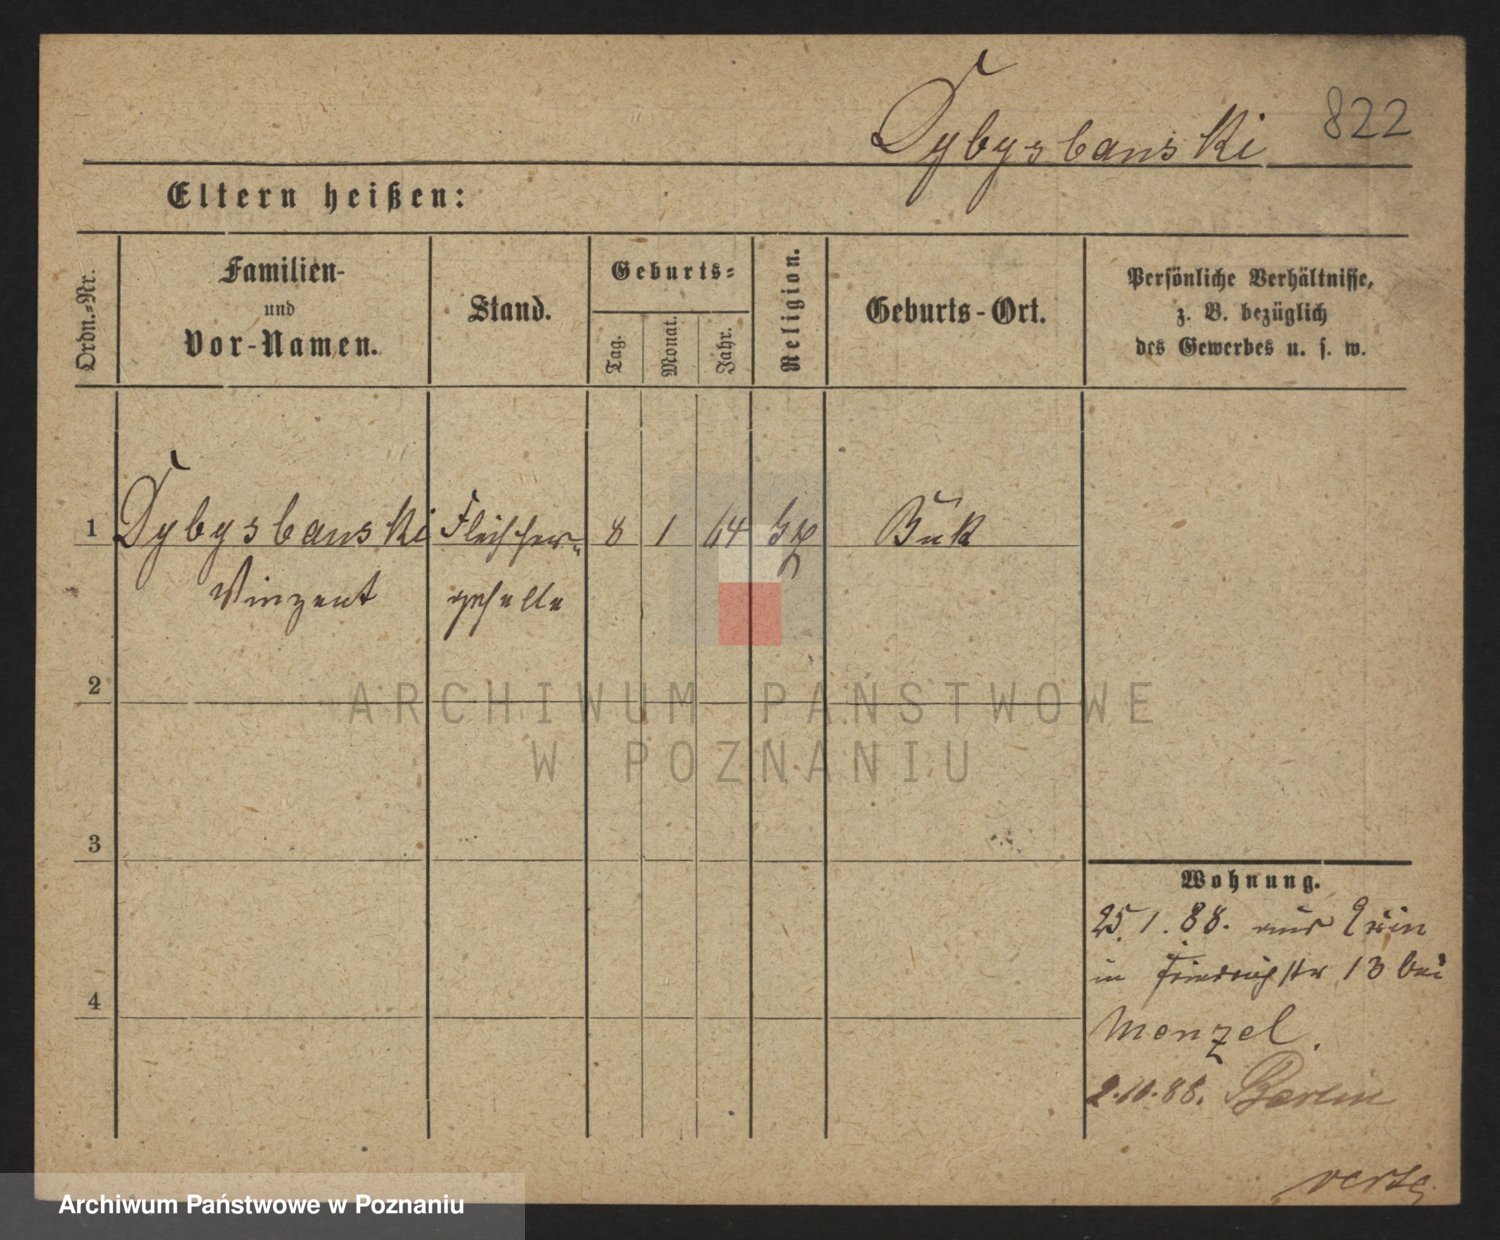 Dybysbanski 822
Eltern heißen:
Ordn.-Nr.
Familien-
und
Vor-Namen.
Stand.
Geburts-
Tag.
Monat.
Jahr.
Religion.
Geburts-Ort.
Persönliche Verhältnisse,
z. B. bezüglich
des Gewerbes u. s. w.
1 Dybysbanski Fleischer- 8 1 64 Buk
Vinzent geselle
2
ARCHIWUM PAŃSTWOWE
W POZNANIU
3
4
Wohnung.
25.1.88. aus Exin
in Friedrichstr 13 bei
Menzel.
2.10.88. Berlin
verzg.
Archiwum Państwowe w Poznaniu